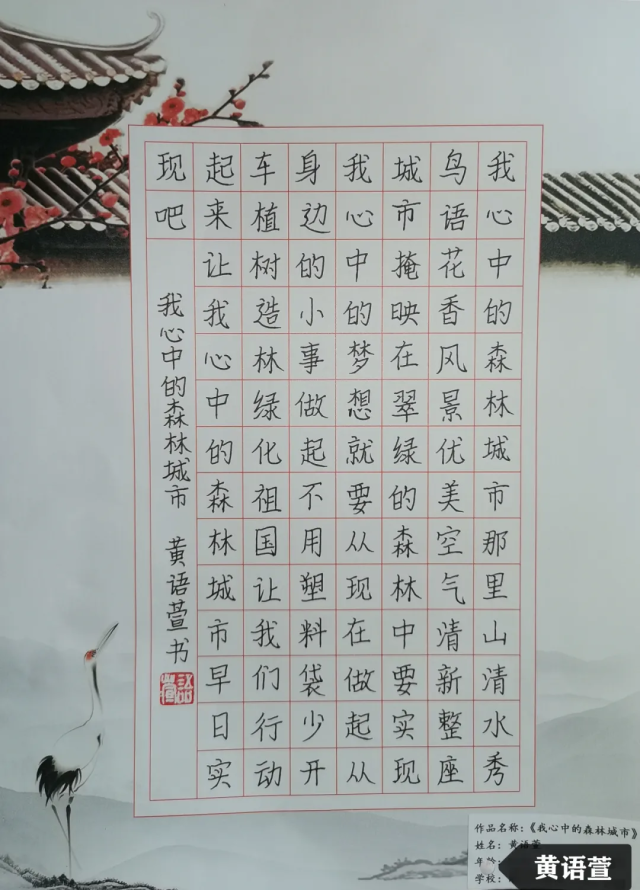 我心中的森林城市那里山清水秀
鸟语花香风景优美空气清新整座
城市掩映在翠绿的森林中要实现
我心中的梦想就要从现在做起从
身边的小事做起不用塑料袋少开
车植树造林绿化祖国让我们行动
起来让我心中的森林城市早日实
现吧
我心中的森林城市 黄语萱书
作品名称:《我心中的森林城市》
姓名: 黄语萱
年龄:
学校:
黄语萱